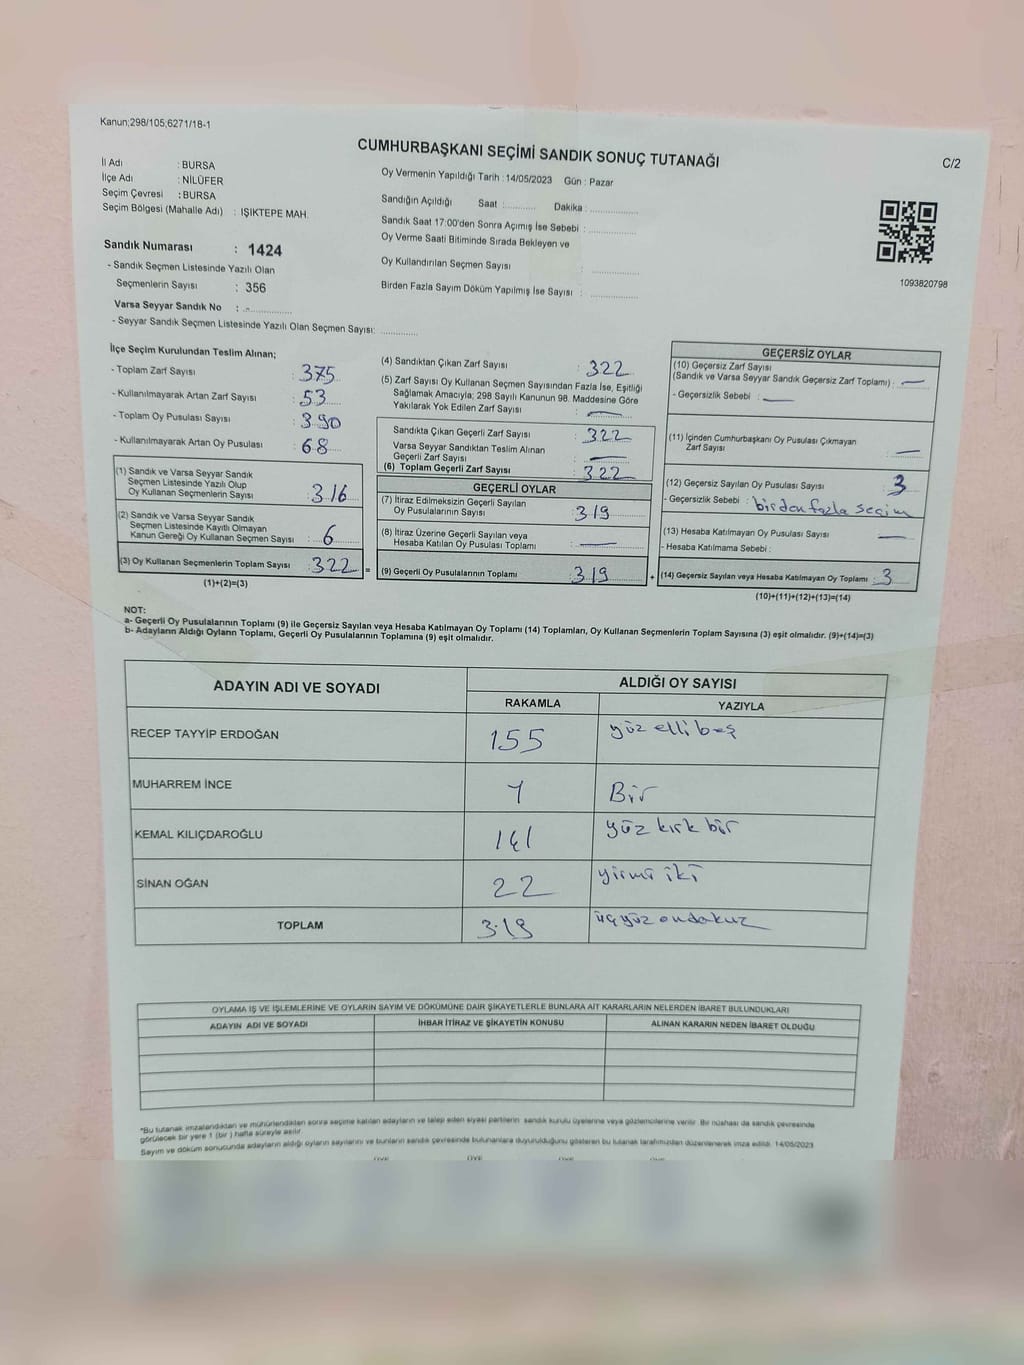 Kanun;298/105;6271/18-1
CUMHURBAŞKANI SEÇİMİ SANDIK SONUÇ TUTANAĞI
C/2
İl Adı : BURSA
İlçe Adı : NİLÜFER
Seçim Çevresi : BURSA
Seçim Bölgesi (Mahalle Adı) : IŞIKTEPE MAH.
Oy Vermenin Yapıldığı Tarih : 14/05/2023 Gün : Pazar
Sandığın Açıldığı Saat :........... Dakika :................
Sandık Saat 17:00'den Sonra Açımış İse Sebebi :................
Oy Verme Saati Bitiminde Sırada Bekleyen ve
Oy Kullandırılan Seçmen Sayısı :................
Birden Fazla Sayım Döküm Yapılmış İse Sayısı :................
1093820798
Sandık Numarası : 1424
- Sandık Seçmen Listesinde Yazılı Olan
Seçmenlerin Sayısı : 356
Varsa Seyyar Sandık No : .-..............
- Seyyar Sandık Seçmen Listesinde Yazılı Olan Seçmen Sayısı: .............
İlçe Seçim Kurulundan Teslim Alınan;
- Toplam Zarf Sayısı : 375
- Kullanılmayarak Artan Zarf Sayısı : 53
- Toplam Oy Pusulası Sayısı : 390
- Kullanılmayarak Artan Oy Pusulası : 68
(1) Sandık ve Varsa Seyyar Sandık
Seçmen Listesinde Yazılı Olup
Oy Kullanan Seçmenlerin Sayısı : 316
(2) Sandık ve Varsa Seyyar Sandık
Seçmen Listesinde Kayıtlı Olmayan
Kanun Gereği Oy Kullanan Seçmen Sayısı : 6
(3) Oy Kullanan Seçmenlerin Toplam Sayısı : 322 =
(1)+(2)=(3)
(4) Sandıktan Çıkan Zarf Sayısı : 322
(5) Zarf Sayısı Oy Kullanan Seçmen Sayısından Fazla İse, Eşitliği
Sağlamak Amacıyla; 298 Sayılı Kanunun 98. Maddesine Göre
Yakılarak Yok Edilen Zarf Sayısı : —
Sandıkta Çıkan Geçerli Zarf Sayısı : 322
Varsa Seyyar Sandıktan Teslim Alınan
Geçerli Zarf Sayısı : —
(6) Toplam Geçerli Zarf Sayısı : 322
GEÇERLİ OYLAR
(7) İtiraz Edilmeksizin Geçerli Sayılan
Oy Pusulalarının Sayısı : 319
(8) İtiraz Üzerine Geçerli Sayılan veya
Hesaba Katılan Oy Pusulası Toplamı : —
(9) Geçerli Oy Pusulalarının Toplamı : 319 +
GEÇERSİZ OYLAR
(10) Geçersiz Zarf Sayısı
(Sandık ve Varsa Seyyar Sandık Geçersiz Zarf Toplamı) : —
- Geçersizlik Sebebi : —
(11) İçinden Cumhurbaşkanı Oy Pusulası Çıkmayan
Zarf Sayısı : —
(12) Geçersiz Sayılan Oy Pusulası Sayısı : 3
- Geçersizlik Sebebi : birden fazla seçim
(13) Hesaba Katılmayan Oy Pusulası Sayısı : —
- Hesaba Katılmama Sebebi :
(14) Geçersiz Sayılan veya Hesaba Katılmayan Oy Toplamı : 3
(10)+(11)+(12)+(13)=(14)
NOT:
a- Geçerli Oy Pusulalarının Toplamı (9) ile Geçersiz Sayılan veya Hesaba Katılmayan Oy Toplamı (14) Toplamları, Oy Kullanan Seçmenlerin Toplam Sayısına (3) eşit olmalıdır. (9)+(14)=(3)
b- Adayların Aldığı Oyların Toplamı, Geçerli Oy Pusulalarının Toplamına (9) eşit olmalıdır.
ADAYIN ADI VE SOYADI
ALDIĞI OY SAYISI
RAKAMLA YAZIYLA
RECEP TAYYİP ERDOĞAN 155 yüz elli beş
MUHARREM İNCE 1 Bir
KEMAL KILIÇDAROĞLU 141 yüz kırk bir
SİNAN OĞAN 22 yirmi iki
TOPLAM 319 üçyüz ondokuz
OYLAMA İŞ VE İŞLEMLERİNE VE OYLARIN SAYIM VE DÖKÜMÜNE DAİR ŞİKAYETLERLE BUNLARA AİT KARARLARIN NELERDEN İBARET BULUNDUKLARI
ADAYIN ADI VE SOYADI İHBAR İTİRAZ VE ŞİKAYETİN KONUSU ALINAN KARARIN NEDEN İBARET OLDUĞU
*Bu tutanak imzalandıktan ve mühürlendikten sonra seçime katılan adayların ve talep eden siyasi partilerin sandık kurulu üyelerine veya gözlemcilerine verilir. Bir nüshası da sandık çevresinde
görülecek bir yere 1 (bir ) hafta süreyle asılır.
Sayım ve döküm sonucunda adayların aldığı oyların sayılarını ve bunların sandık çevresinde bulunanlara duyurulduğunu gösteren bu tutanak tarafımızdan düzenlenerek imza edildi. 14/05/2023
ÜYE ÜYE ÜYE ÜYE